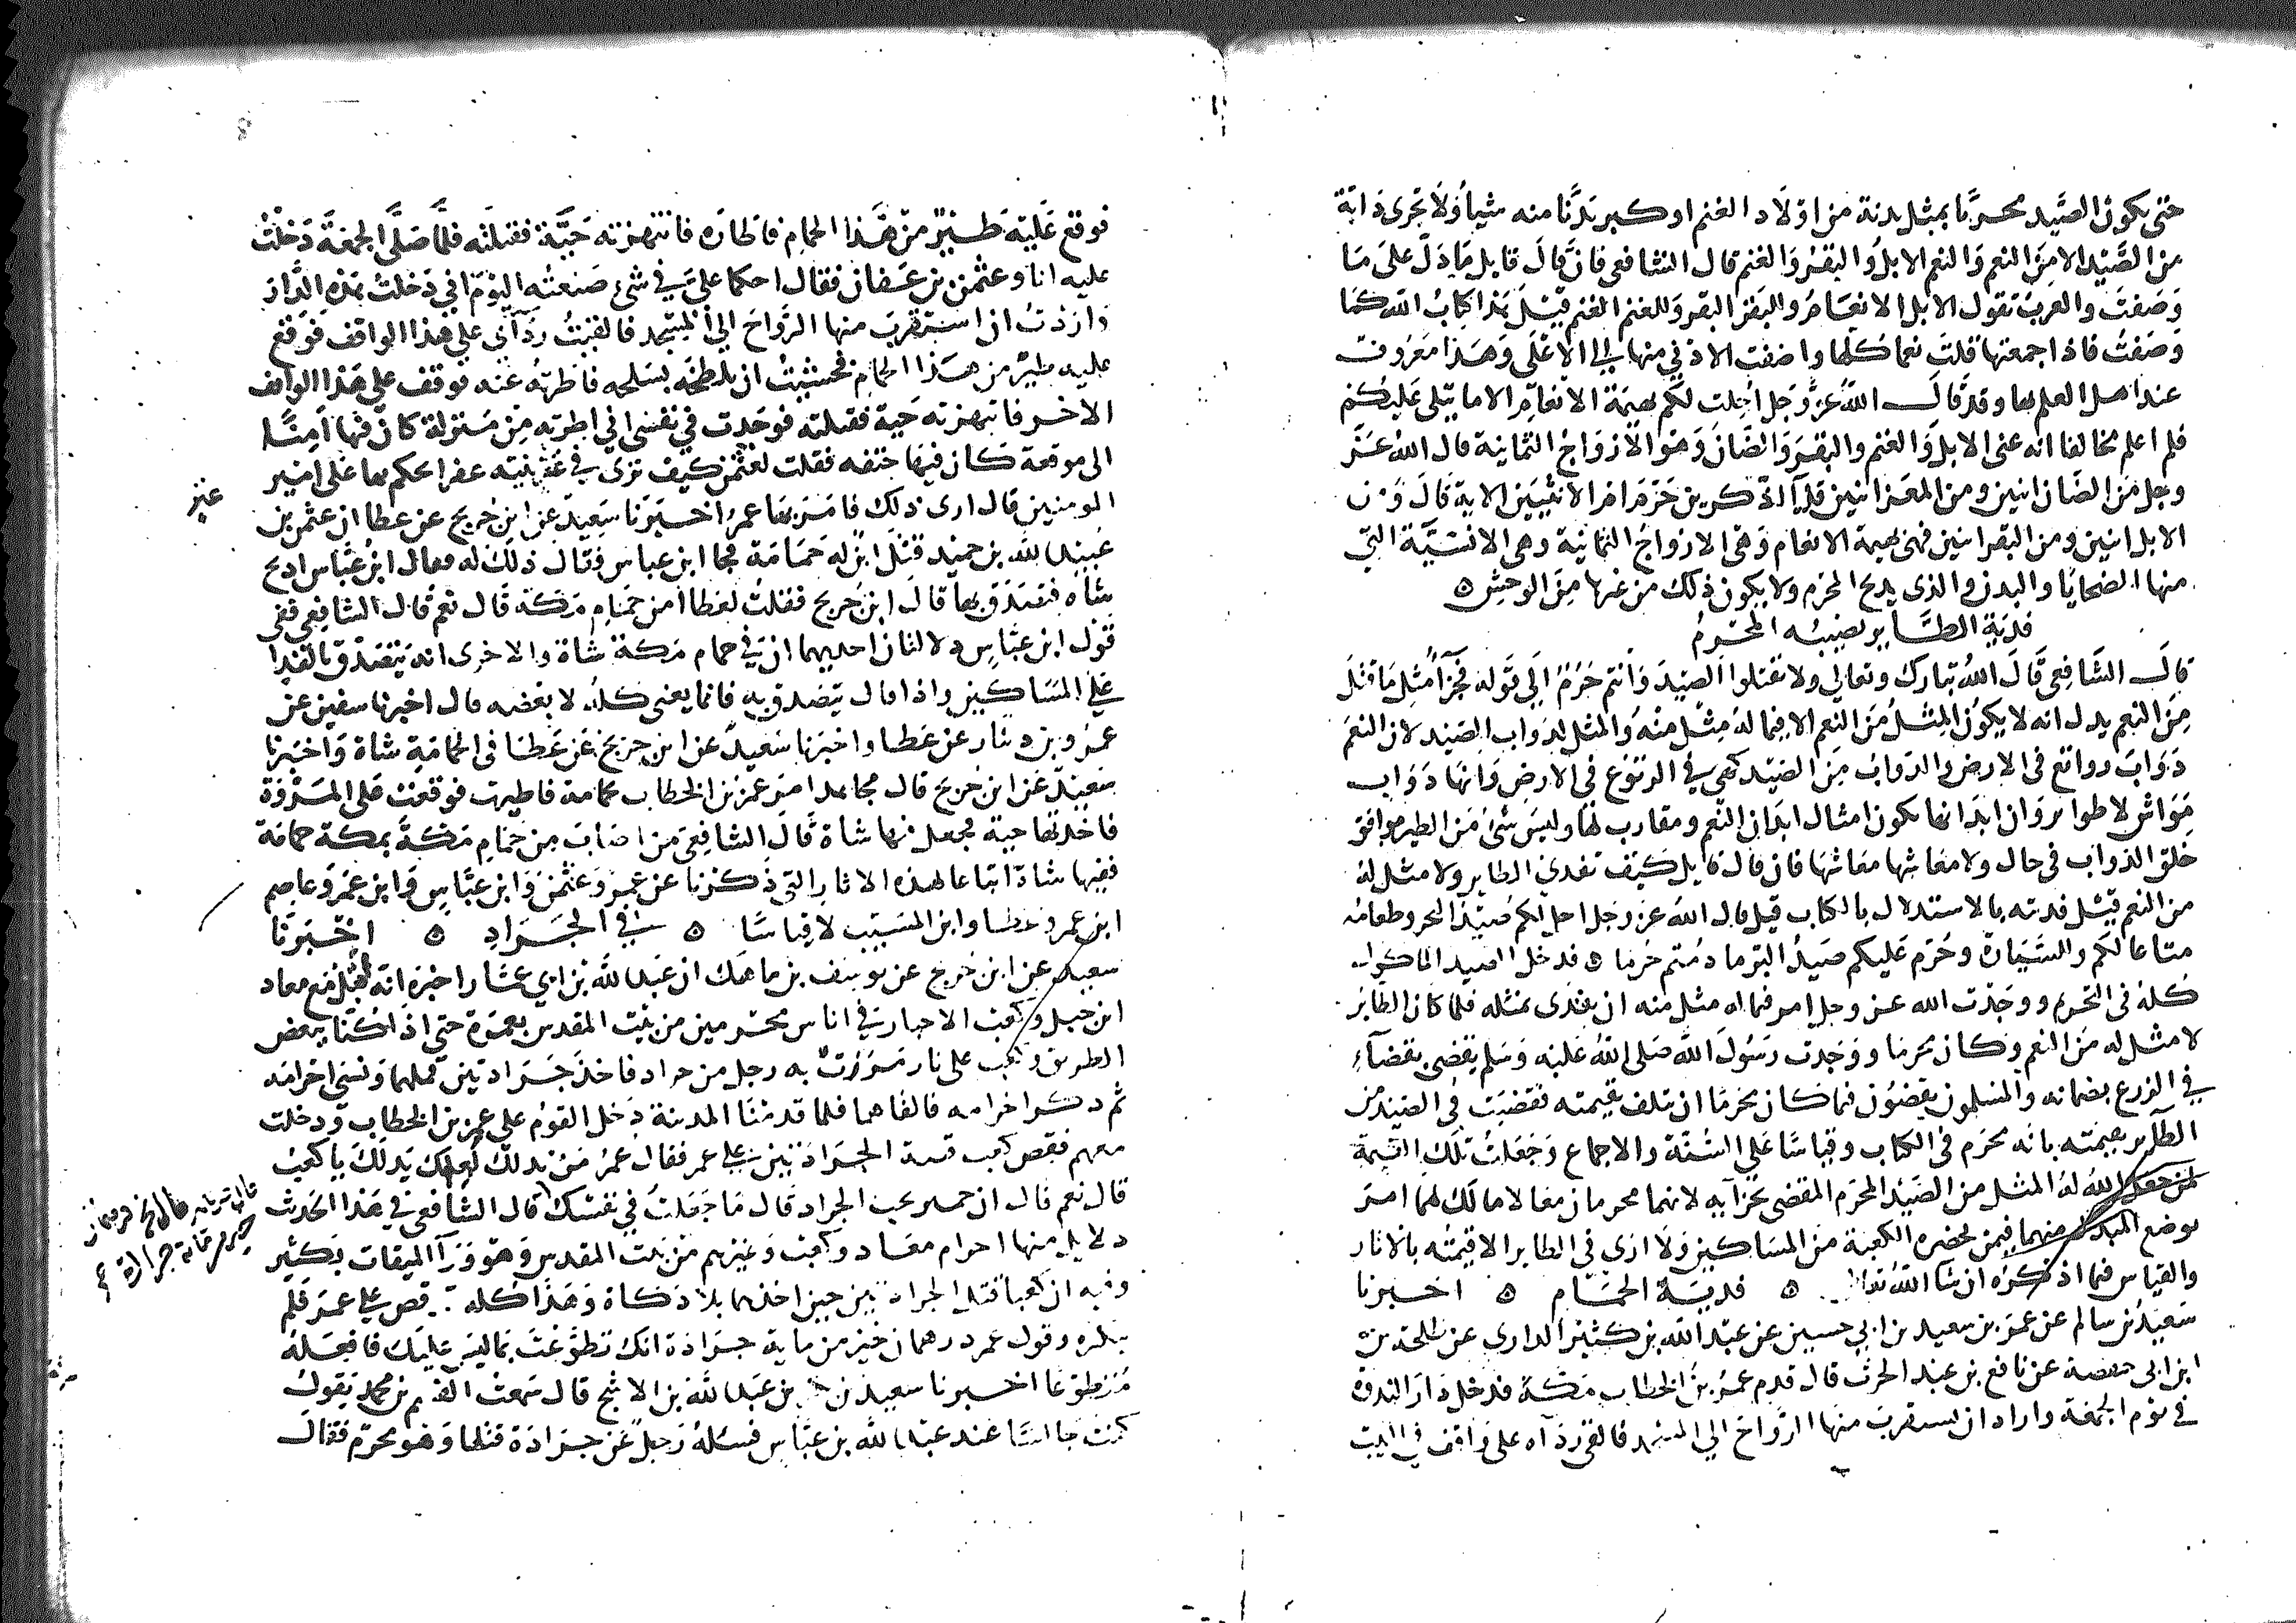 حتى يكون الصيد محرما بمثل بدنة من اولاد الغنم او كبير بدنا منه شيا ولا تجزى دابة
من الصيد الا من النعم والنعم الابل والبقر والغنم قال الشافعى فان قال قايل ما دل على ما
وصفت والعرب تقول الابل الانعام والبقر البقر وللغنم الغنم قيل هذا كتاب الله كما
وصفت فاذا جمعتها قلت نعما كلها واضفت الادنى منها الى الاعلى وهذا معروف
عند اهل العلم بها وقد قال الله عز وجل احلت لكم بهيمة الانعام الا ما يتلى عليكم
فلم اعلم مخالفا انه عنى الابل والغنم والبقر والضان وهو الازواج الثمانية قال الله عز
وجل من الضان اثنين ومن المعز اثنين قل آالذكرين حرم ام الانثيين الاية قال ومن
الابل اثنين ومن البقر اثنين فهى بهيمة الانعام وهى الازواج الثمانية وهى الانسية التى
منها الضحايا والبدن والذى يذبح المحرم ولا يكون ذلك من غيرها من الوحش ه
فدية الطاير يصيبه المحرم
قال الشافعى قال الله تبارك وتعالى ولا تقتلوا الصيد وانتم حرم الى قوله فجزآ مثل ما قتل
من النعم يدل انه لا يكون المثل من النعم الا فيما له مثل منه والمثل لدواب الصيد لان النعم
دواب رواتع فى الارض والدواب من الصيد كهى فى الرتوع فى الارض وانها دواب
مواش لا طواير وان ابدانها تكون امثال ابدان النعم ومقارب لها وليس شئ من الطير يوافق
خلق الدواب فى حال ولا معاشها معاشها فان قال قايل كيف تفدى الطاير ولا مثل له
من النعم قيل فديته بالاستدلال بالكتاب قيل قال الله عز وجل احل لكم صيد البحر وطعامه
متاعا لكم وللسيارة وحرم عليكم صيد البر ما دمتم حرما ه فدخل الصيد الماكول
كله فى التحريم ووجدت الله عز وجل امر فيما له مثل منه ان يفدى بمثله فلما كان الطاير
لا مثل له من النعم وكان محرما ووجدت رسول الله صلى الله عليه وسلم يقضى بقضآء
فى الزرع بضمانه والمسلمون يقضون فيما كان محرما ان يتلف بقيمته فقضيت فى الصيد من
الطاير بقيمته بانه محرم فى الكتاب وقياسا على السنة والاجماع وجعلت تلك القيمة
لمن جعل الله له المثل من الصيد المحرم المقضى بجزآيه لانهما محرمان معا لا مالك لهما امر
بوضع المبدل منهما فيمن بحضره الكعبة من المساكين ولا ارى فى الطاير الا قيمته بالاثار
والقياس فيما اذكره ان شا الله تعالى ه فدية الحمام ه اخبرنا
سعيد بن سالم عن عمر بن سعيد بن ابى حسين عن عبد الله بن كثير الدارى عن طلحة بن
ابن ابى حفصة عن نافع بن عبد الحرث قال قدم عمر بن الخطاب مكة فدخل دار الندوة
فى يوم الجمعة واراد ان يستقرب منها الرواح الى المسجد فالقى ردآه على واقف فى البيت
فوقع عليه طير من هذا الحمام فاطاره فانتهزته حية فقتلته فلما صلى الجمعة دخلت
عليه انا وعثمن بن عفان فقال احكما على فى شئ صنعته اليوم انى دخلت هذه الدار
واردت ان استقرب منها الرواح الى المسجد فالقيت ردآى على هذا الواقف فوقع
عليه طير من هذا الحمام فخشيت ان يلطخه بسلحه فاطرته عنه فوقف على هذا الواقف
الاخر فانتهزته حية فقتلته فوجدت فى نفسى انى اطرته من منزلة كان فيها امنا
الى موقعة كان فيها حتفه فقلت لعثمن كيف ترى فى عنز ثنية عفرا نحكم بها على امير
عنز
المومنين قال ارى ذلك فامر بها عمر اخبرنا سعيد عن ابن جريج عن عطا ان عثمن بن
عبيد الله بن حميد قتل ابن له حمامة فجا ابن عباس فقال ذلك له فقال ابن عباس اذبح
شاه فتصدق بها قال ابن جريج فقلت لعطا امن حمام مكة قال نعم قال الشافعى ففى
قول ابن عباس دلالتان احديهما ان فى حمام مكة شاة والاخرى انه يتصدق بالفدا
على المساكين واذا قال يتصدق به فانما يعنى كله لا بعضه قال اخبرنا سفين عن
عمرو بن دينار عن عطا واخبرنا سعيد عن ابن جريج عن عطا فى الحمامة شاة واخبرنا
سعيد عن ابن جريج قال مجاهد امر عمر بن الخطاب بحمامة فاطيرت فوقعت على المروة
فاخذتها حية فجعل فيها شاة قال الشافعى من اصاب من حمام مكة بمكة حمامة
ففيها شاة اتباعا لهذه الاثار التى ذكرنا عن عمر وعثمن وابن عباس وابن عمر وعاصم
ابن عمر وعطا وابن المسيب لا قياسا ه فى الجراد ه اخبرنا
سعيد عن ابن جريج عن يوسف بن ماهك ان عبد الله بن ابى عمار اخبره انه اقبل مع معاذ
ابن جبل وكعب الاحبار فى اناس محرمين من بيت المقدس بعمرة حتى اذا كنا ببعض
الطريق وكعب على نار مرت به رجل من جراد فاخذ جرادتين فملهما ونسى احرامه
ثم ذكر احرامه فالقاهما فلما قدمنا المدينة دخل القوم على عمر بن الخطاب ودخلت
معهم فقص كعب قصة الجرادتين على عمر فقال عمر من بذلك لعلك بذلك يا كعب
قال نعم قال ان حمير تحب الجراد قال ما جعلت فى نفسك قال الشافعى فى هذا الحديث
دلايل منها احرام معاذ وكعب وغيرهم من بيت المقدس وهو ورآ الميقات بكثير
وفيه ان كعبا قتل الجرادتين حين اخذهما بلا ذكاة وهذا كله قص على عمر فلم
ينكره وقول عمر درهمان خير من ماية جرادة انك تطوعت بما ليس عليك فافعله
متطوعا اخبرنا سعيد بن بن عبد الله بن الاشج قال سمعت القسم بن محمد يقول
كنت جالسا عند عبد الله بن عباس فسئله رجل عن جرادة قتلها وهو محرم فقال